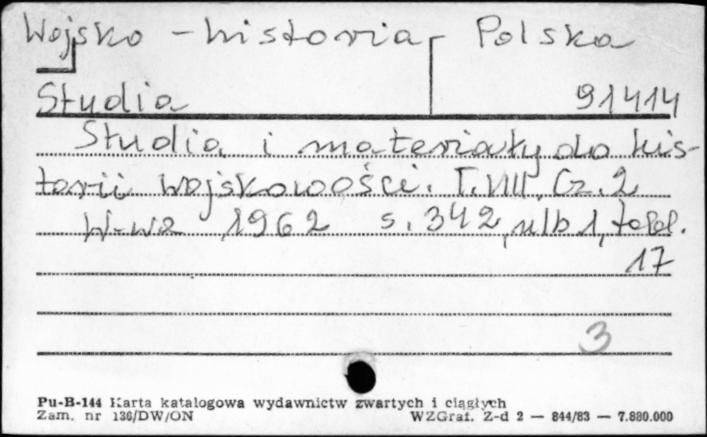 Wojsko - historia, Polska
Studia 91414
Studia i materiały do his-
torii wojskowości. T. VIII, Cz. 2
W-wa 1962 s. 342, nlb 1, tabl.
17
3
Pu-B-144 Karta katalogowa wydawnictw zwartych i ciągłych
Zam. nr 136/DW/ON WZGraf. Z-d 2 — 844/83 — 7.880.000